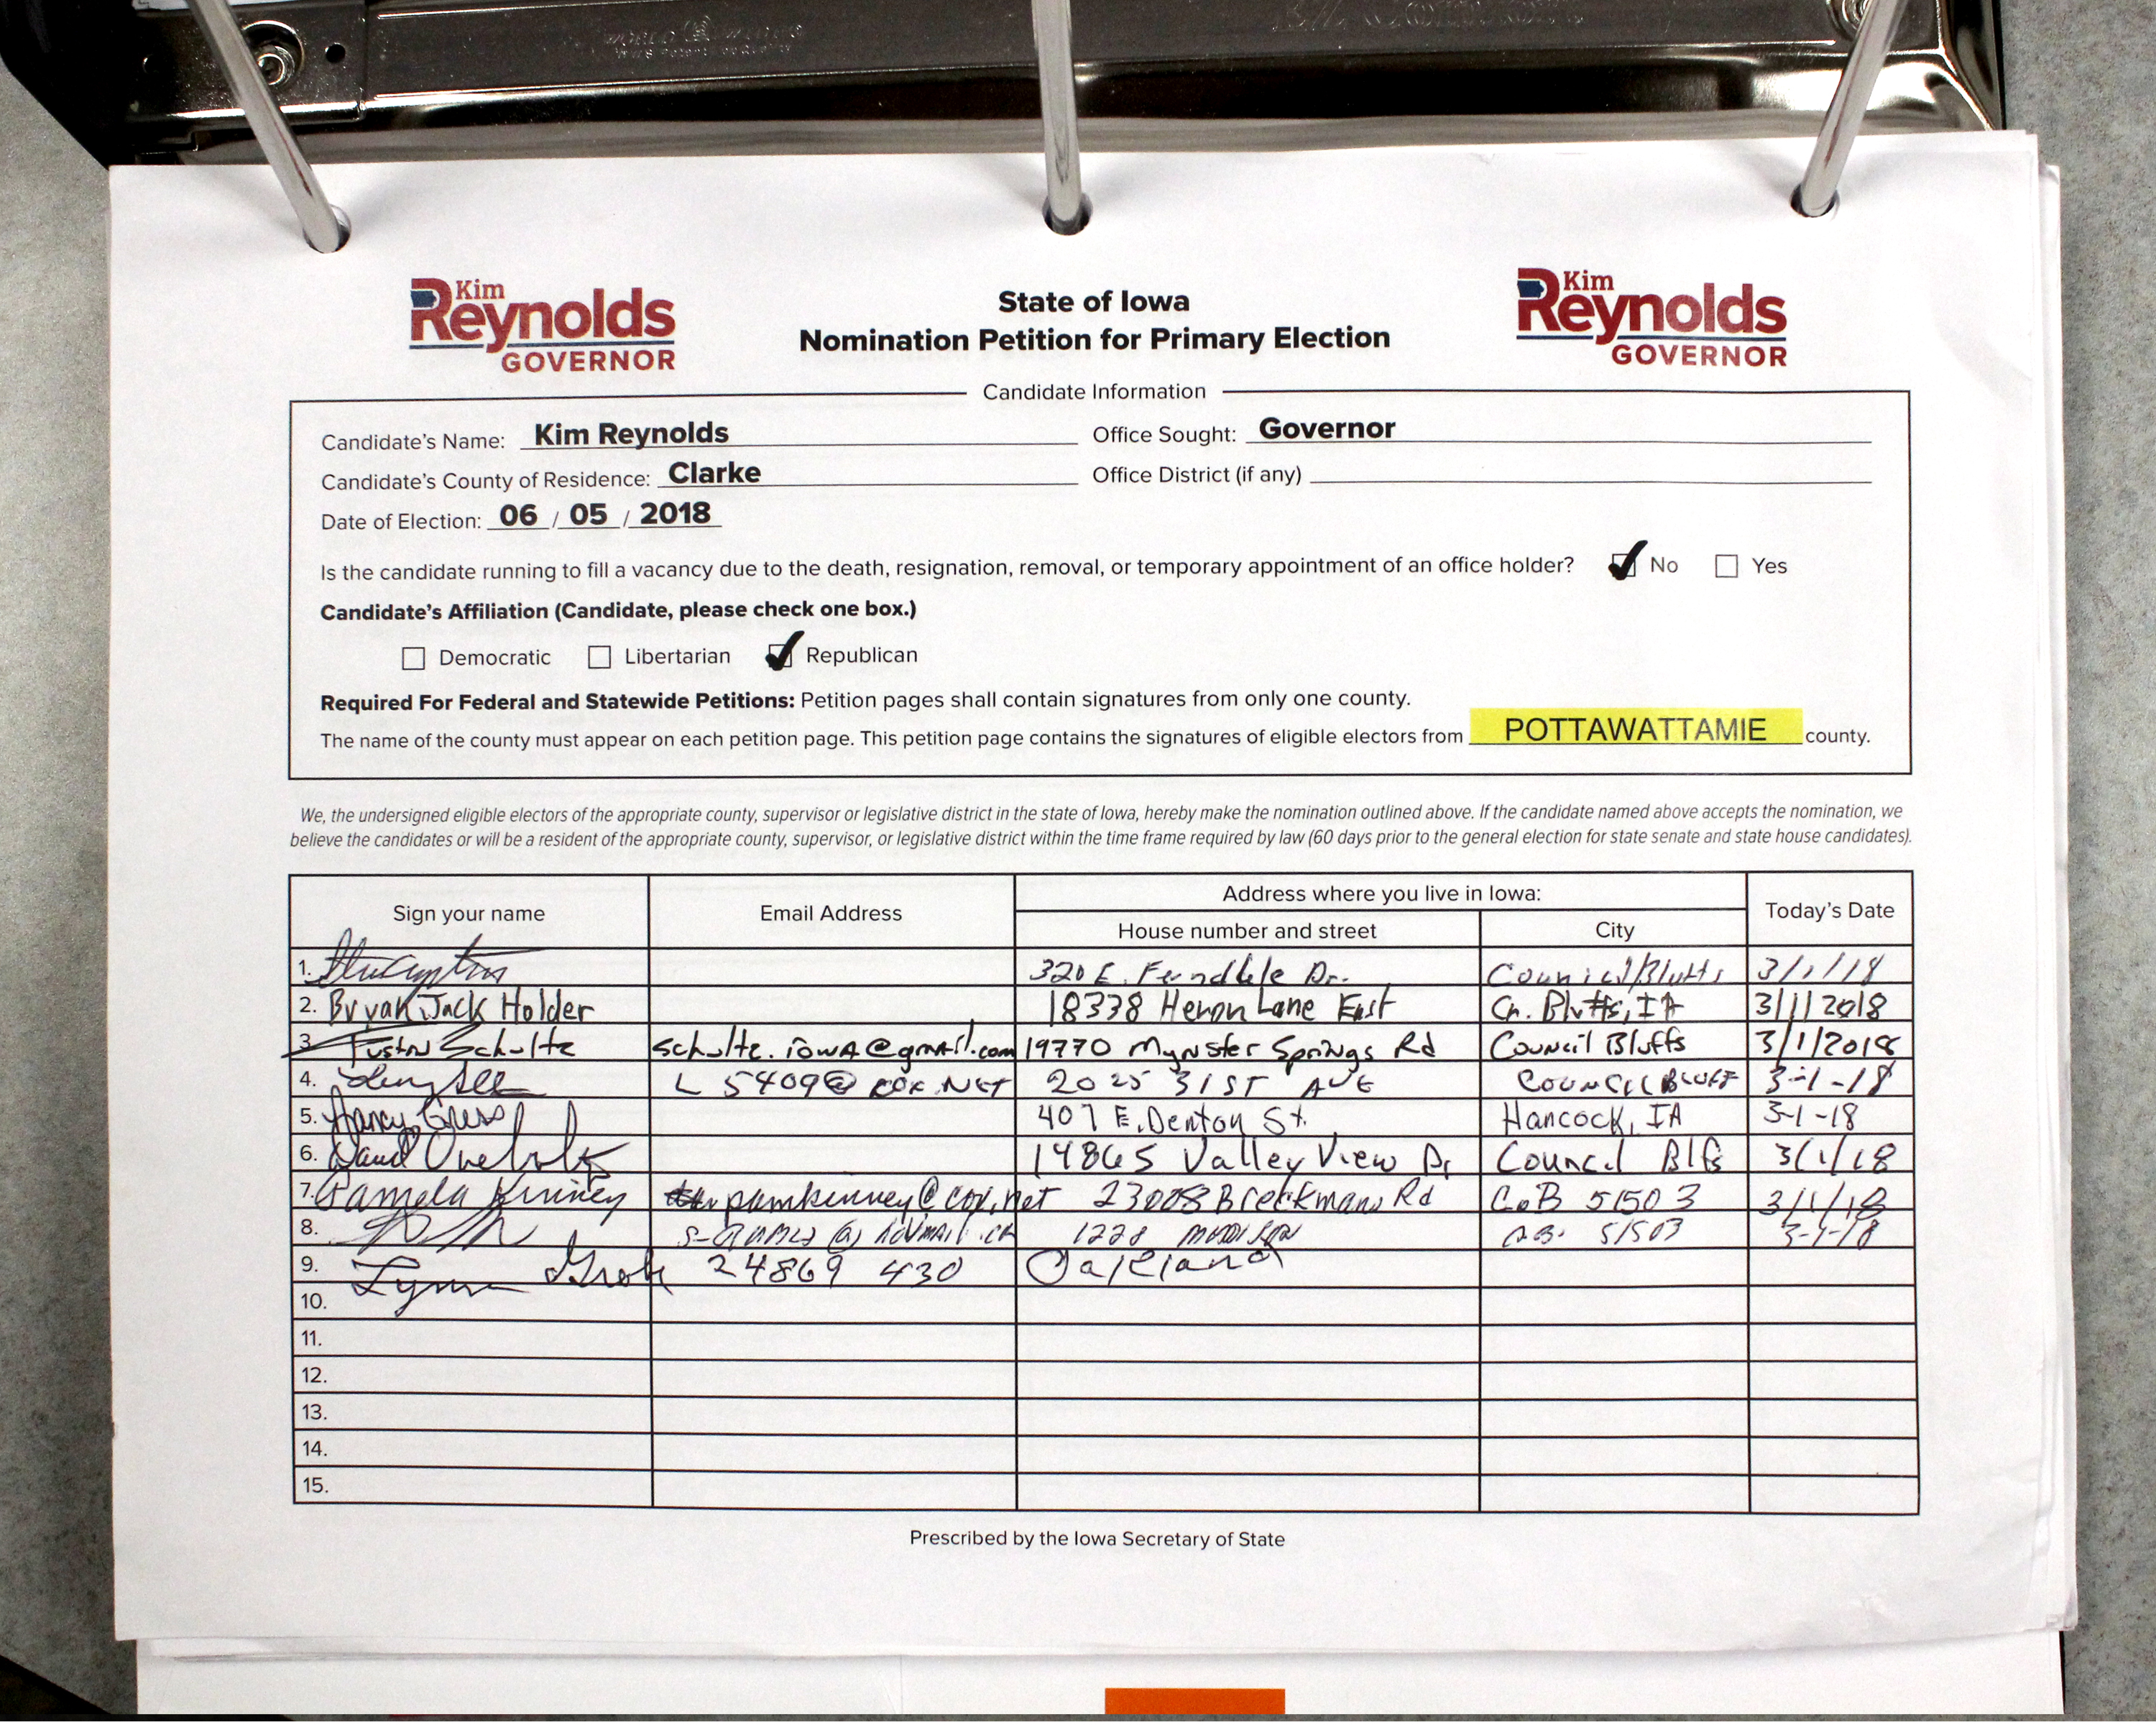 Kim
Reynolds
GOVERNOR
State of Iowa
Nomination Petition for Primary Election
Kim
Reynolds
GOVERNOR
Candidate Information
Candidate's Name: Kim Reynolds Office Sought: Governor
Candidate's County of Residence: Clarke Office District (if any)
Date of Election: 06 / 05 / 2018
Is the candidate running to fill a vacancy due to the death, resignation, removal, or temporary appointment of an office holder? No Yes
Candidate's Affiliation (Candidate, please check one box.)
Democratic Libertarian Republican
Required For Federal and Statewide Petitions: Petition pages shall contain signatures from only one county.
The name of the county must appear on each petition page. This petition page contains the signatures of eligible electors from POTTAWATTAMIE county.
We, the undersigned eligible electors of the appropriate county, supervisor or legislative district in the state of Iowa, hereby make the nomination outlined above. If the candidate named above accepts the nomination, we
believe the candidates or will be a resident of the appropriate county, supervisor, or legislative district within the time frame required by law (60 days prior to the general election for state senate and state house candidates).
Sign your name Email Address Address where you live in Iowa: Today's Date
House number and street City
1. 320 E. Ferndale Dr. Council Bluffs 3/1/18
2. Bryan Jack Holder 18338 Heron Lane East Cn. Bluffs, IA 3/1/2018
3. Justin Schultz schultz.iowa@gmail.com 19770 Mynster Springs Rd Council Bluffs 3/1/2018
4. L5409@COX.NET 2025 31ST AVE COUNCIL BLUFF 3-1-18
5. Nancy 407 E. Denton St. Hancock, IA 3-1-18
6. David 14865 Valley View Dr Council Blfs 3/1/18
7. Pamela Kinney pamkinney@cox.net 23008 Rd CoB 51503 3/1/18
8. 1228 51503 3-1-18
9. Lynn 24869 430 Oakland
10.
11.
12.
13.
14.
15.
Prescribed by the Iowa Secretary of State